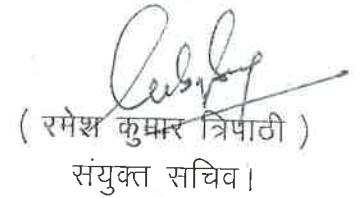 ( रमेश कुमार त्रिपाठी )
संयुक्त सचिव।